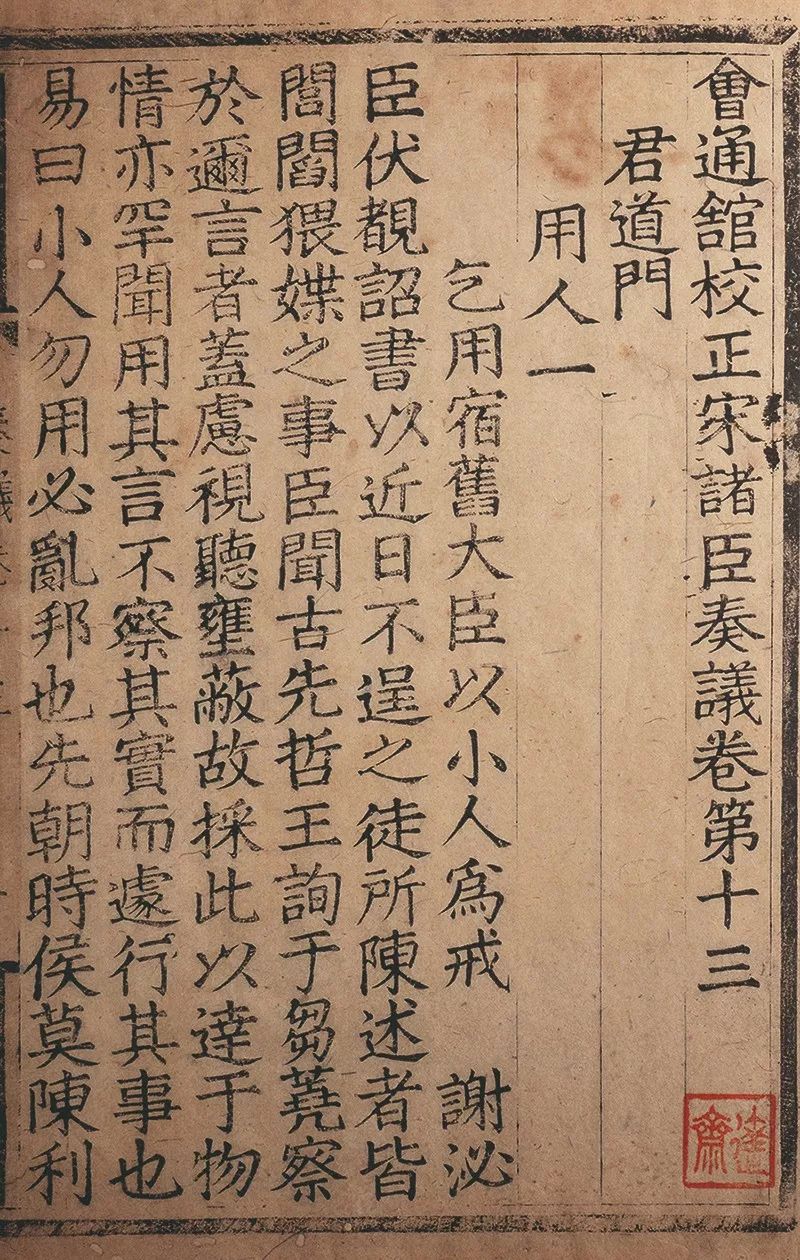 會通館校正宋諸臣奏議卷第十三
君道門
用人一
乞用宿舊大臣以小人爲戒 謝泌
臣伏覩詔書以近日不逞之徒所陳述者皆
閭閻猥媟之事臣聞古先哲王詢于芻蕘察
於邇言者蓋慮視聽壅蔽故採此以達于物
情亦罕聞用其言不察其實而遽行其事也
易曰小人勿用必亂邦也先朝時侯莫陳利